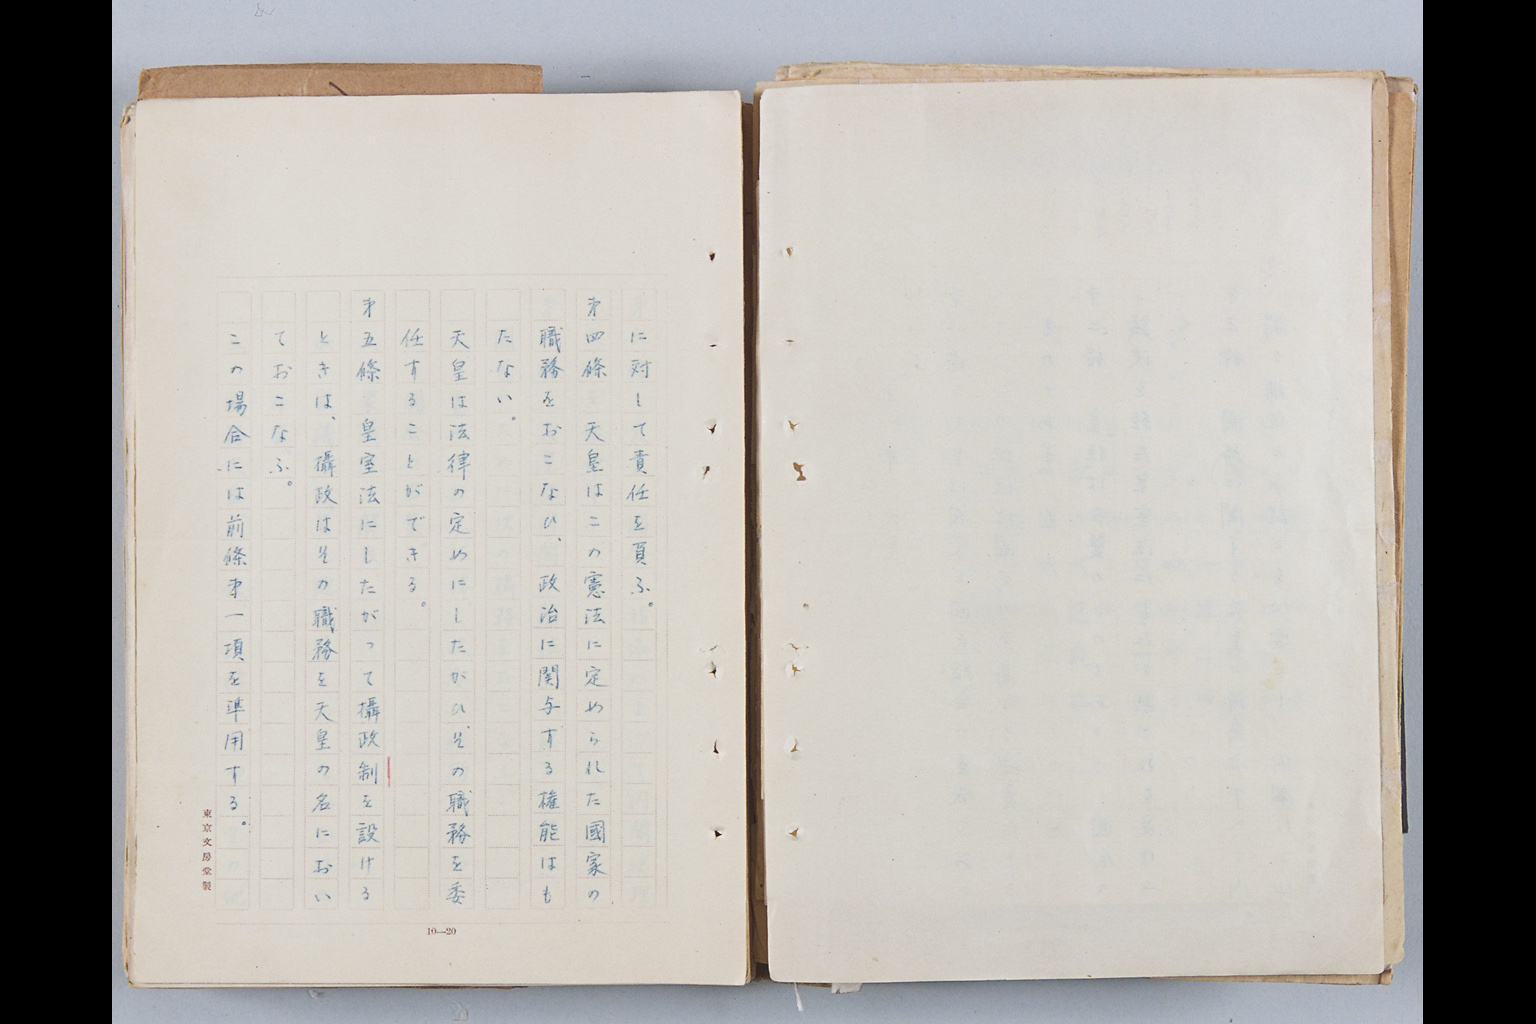 に対して責任を負ふ。
第四條　天皇はこの憲法に定められた國家の
職務をおこなひ、政治に関与する権能はも
たない。
天皇は法律の定めにしたがひ、その職務を委
任することができる。
第五條　皇室法にしたがつて攝政制を設ける
ときは、攝政はその職務を天皇の名におい
ておこなふ。
この場合には前條第一項を準用する。
東京文房堂製
10—20